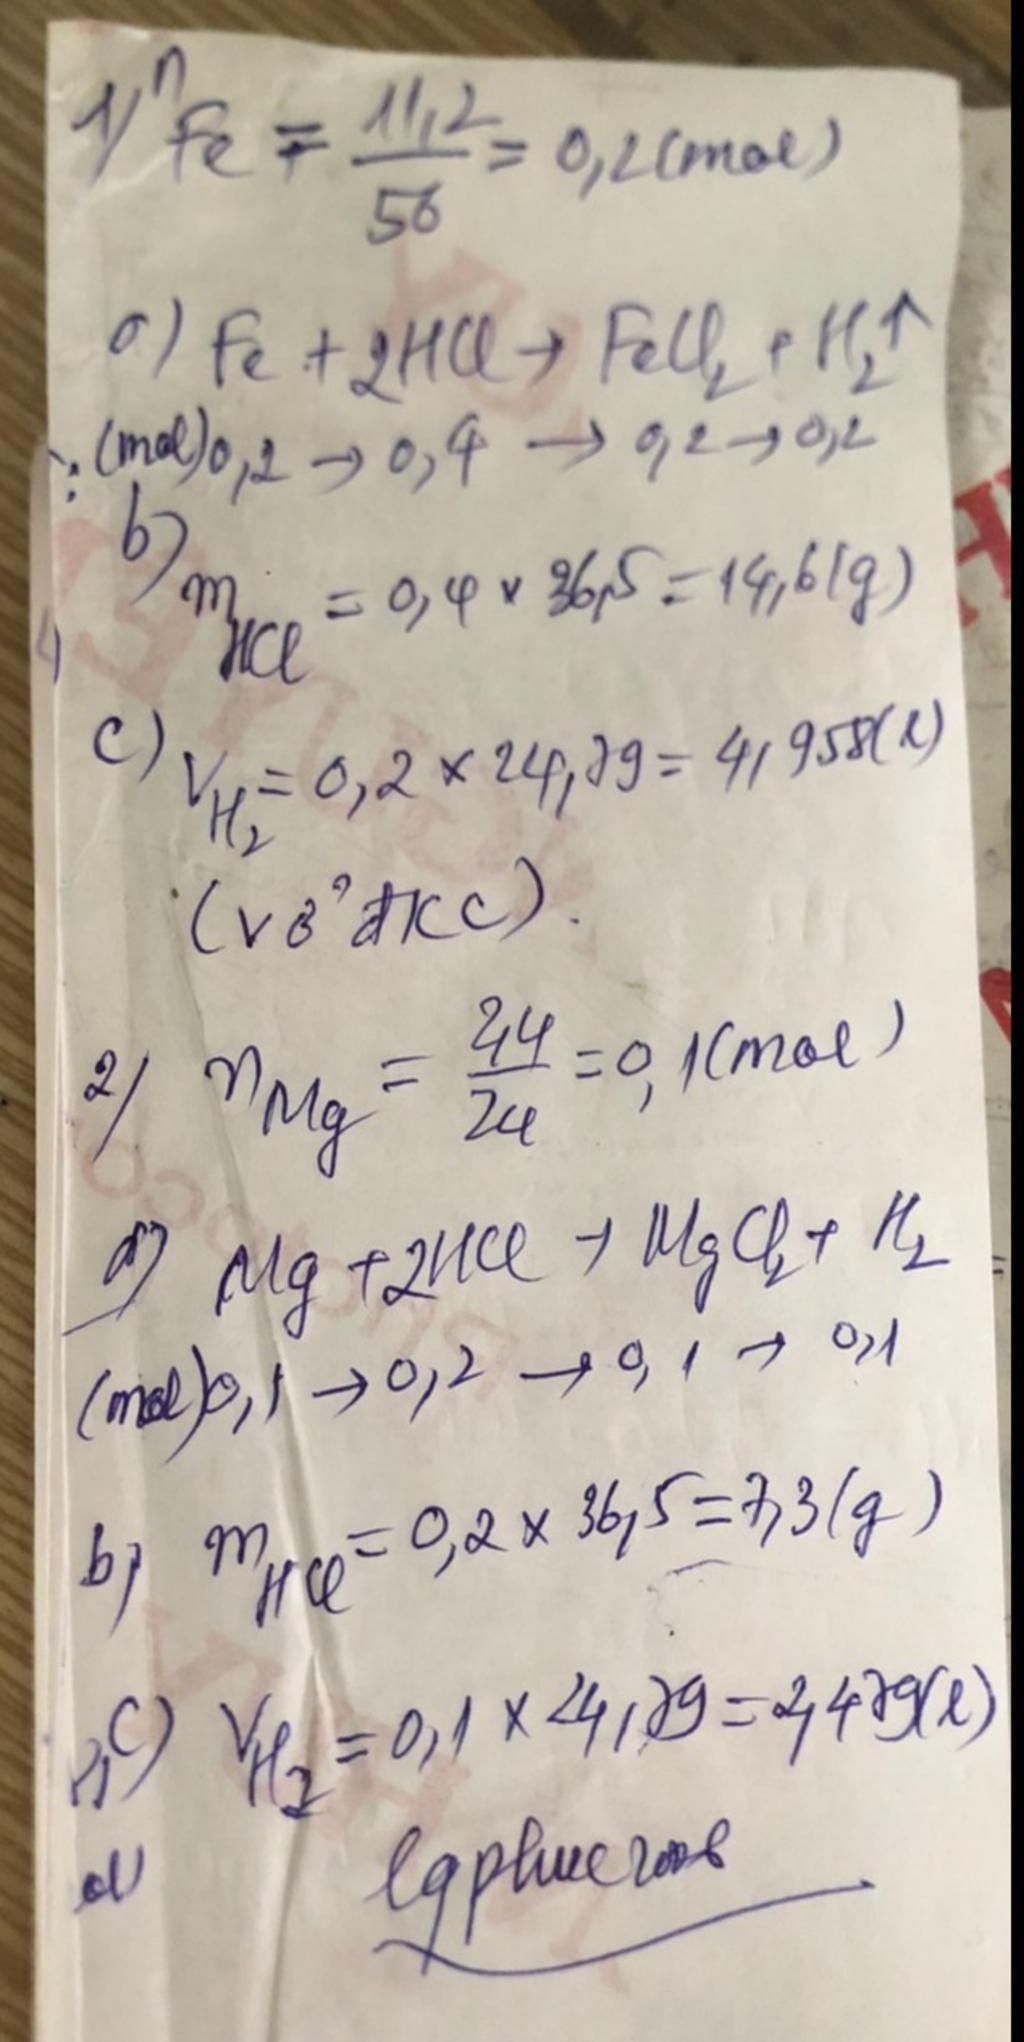 1) nFe = 11,2/56 = 0,2(mol)
a) Fe + 2HCl → FeCl2 + H2↑
(mol) 0,2 → 0,4 → 0,2 → 0,2
b) mHCl = 0,4 × 36,5 = 14,6(g)
c) VH2 = 0,2 × 24,79 = 4,958(l)
(vở đkc).
2) nMg = 2,4/24 = 0,1(mol)
a) Mg + 2HCl → MgCl2 + H2
(mol) 0,1 → 0,2 → 0,1 → 0,1
b) mHCl = 0,2 × 36,5 = 7,3(g)
c) VH2 = 0,1 × 24,79 = 2,479(l)